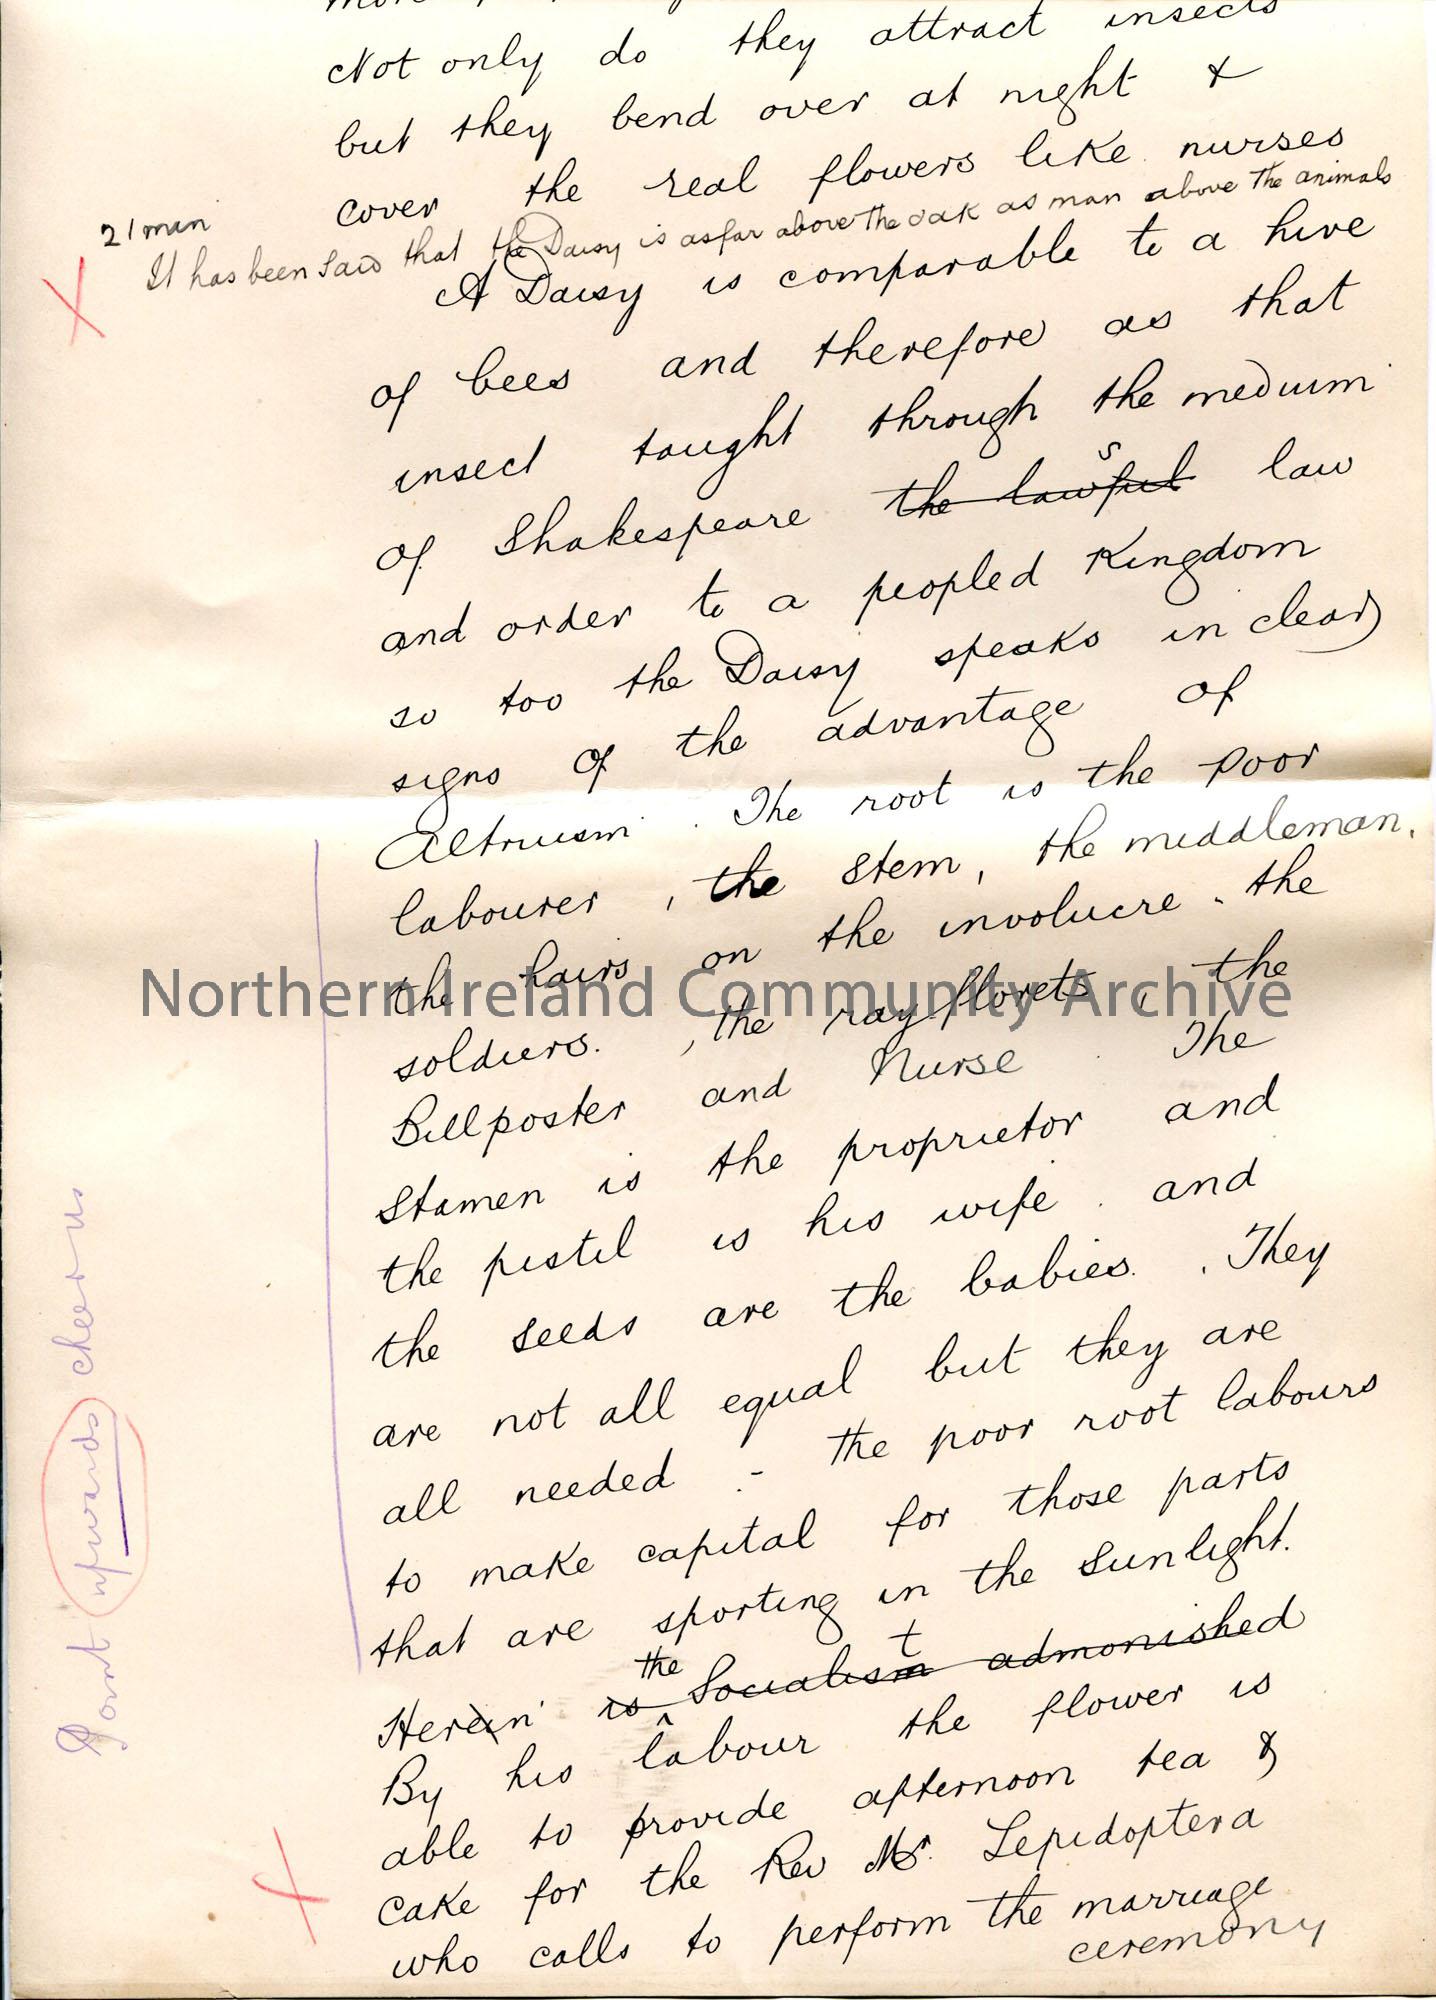 Not only do they attract insects
but they bend over at night &
cover the real flowers like nurses
21 man
It has been said that the Daisy is as far above the oak as man above the animals
A Daisy is comparable to a hive
of bees and therefore as that
insect taught through the medium
s
of Shakespeare the lawful law
and order to a peopled Kingdom
so too the Daisy speaks in clear
signs of the advantage of
Altruism. The root is the poor
labourer, the stem, the middleman,
the hairs on the involucre, the
Northern Ireland Community Archive
soldiers., the ray florets, the
Billposter and Nurse. The
Stamen is the proprietor and
the pistil is his wife. and
the seeds are the babies. They
are not all equal but they are
all needed - the poor root labours
to make capital for those parts
that are sporting in the sunlight.
the t
Herein is Socialism admonished
By his labour the flower is
able to provide afternoon tea &
cake for the Rev Mr. Lepidoptera
who calls to perform the marriage
ceremony
Point upwards cheer us